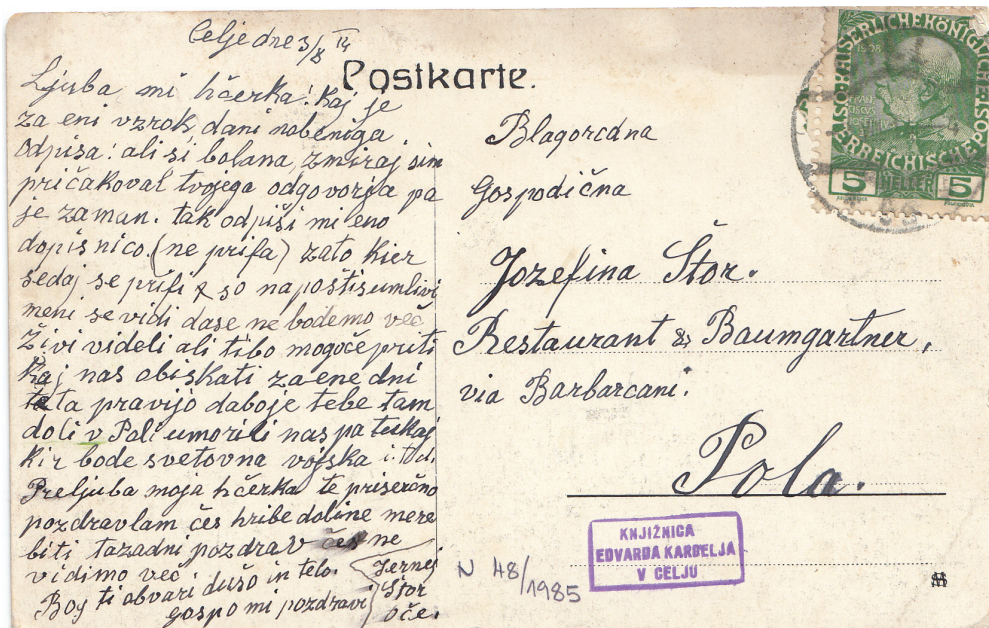 Celje dne 3/8 14
Postkarte.
Ljuba mi hčerka! Kaj je
za eni vzrok, dani nobeniga
odpisa! ali si bolana, zmiraj sim
pričakoval tvojega odgovorja pa
je zaman. tak odpiši mi eno
dopisnico (ne prifa) zato kier
sedaj se prifi so na pošti sumlivi
meni se vidi dase ne bodemo več
živi videli ali tibo mogoče priti
Kaj nas obiskati za ene dni
teta pravijo daboje tebe tam
doli v Poli umorili nas pa tukaj
kir bode svetovna vojska i.t.d.
Preljuba moja hčerka te priserčno
pozdravlam čes hribe doline mere
biti tazadni pozdrav če se ne
vidimo več.
Bog ti obvari dušo in telo.
gospo mi pozdravi
Jernej
Štor
oče.
Blagorodna
Gospodična
Jozefina Štor.
Restaurant & Baumgartner,
via Barbarcani.
Pola.
KNJIŽNICA
EDVARDA KARDELJA
V CELJU
N 48/1985
KAISERLICHE KÖNIGLICHE
ÖSTERREICHISCHE
1908
5 HELLER 5